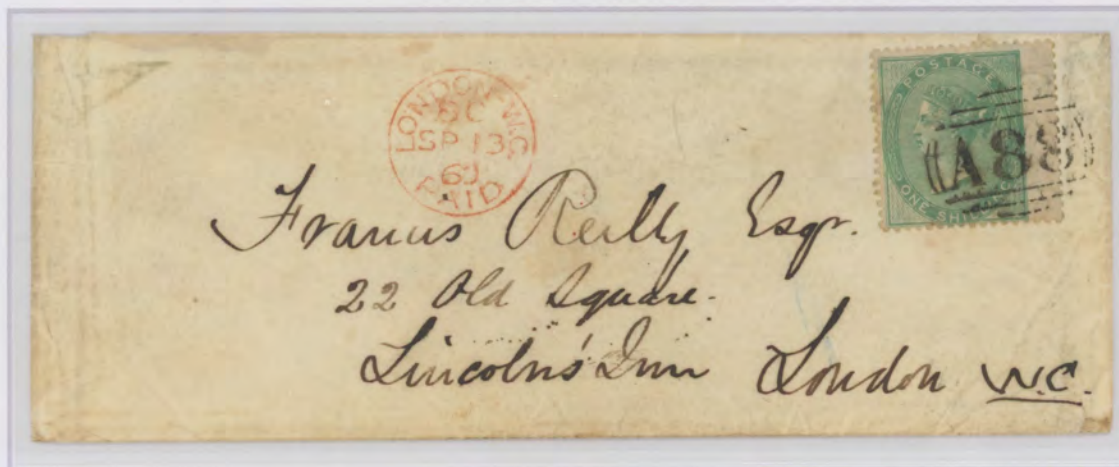 LONDON W.C
SP 13
PAID
POSTAGE
ONE
A88
Francis Reilly Esqr.
22 Old Square.
Lincoln's Inn London W.C.